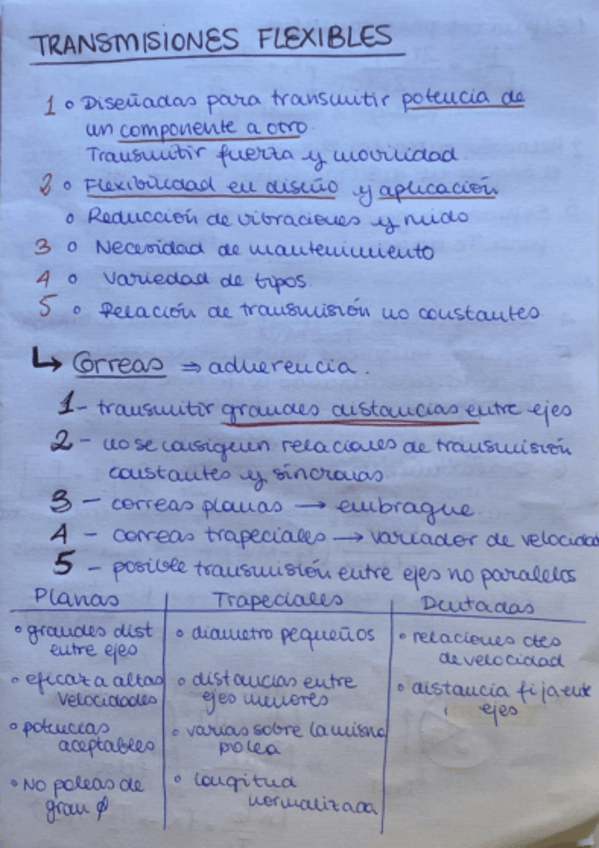 TRANSMISIONES FLEXIBLES
1 o Diseñadas para transmitir potencia de
un componente a otro.
Transmitir fuerza y movilidad.
2 o Flexibilidad en diseño y aplicación
o Reducción de vibraciones y ruido
3 o Necesidad de mantenimiento
4 o Variedad de tipos.
5 o Relación de transmisión no constantes
↳ Correas ⇒ adherencia.
1 - transmitir grandes distancias entre ejes
2 - no se consiguen relaciones de transmisión
constantes y síncronas
3 - correas planas → embrague
4 - correas trapeciales → variador de velocidad
5 - posible transmisión entre ejes no paralelos
Planas Trapeciales Dentadas
o grandes dist o diametro pequeños o relaciones ctes
entre ejes de velocidad
o eficaz a altas o distancias entre o distancia fija entre
velocidades ejes menores ejes
o potencias o varias sobre la misma
aceptables polea
o No poleas de o longitud
gran ϕ normalizada